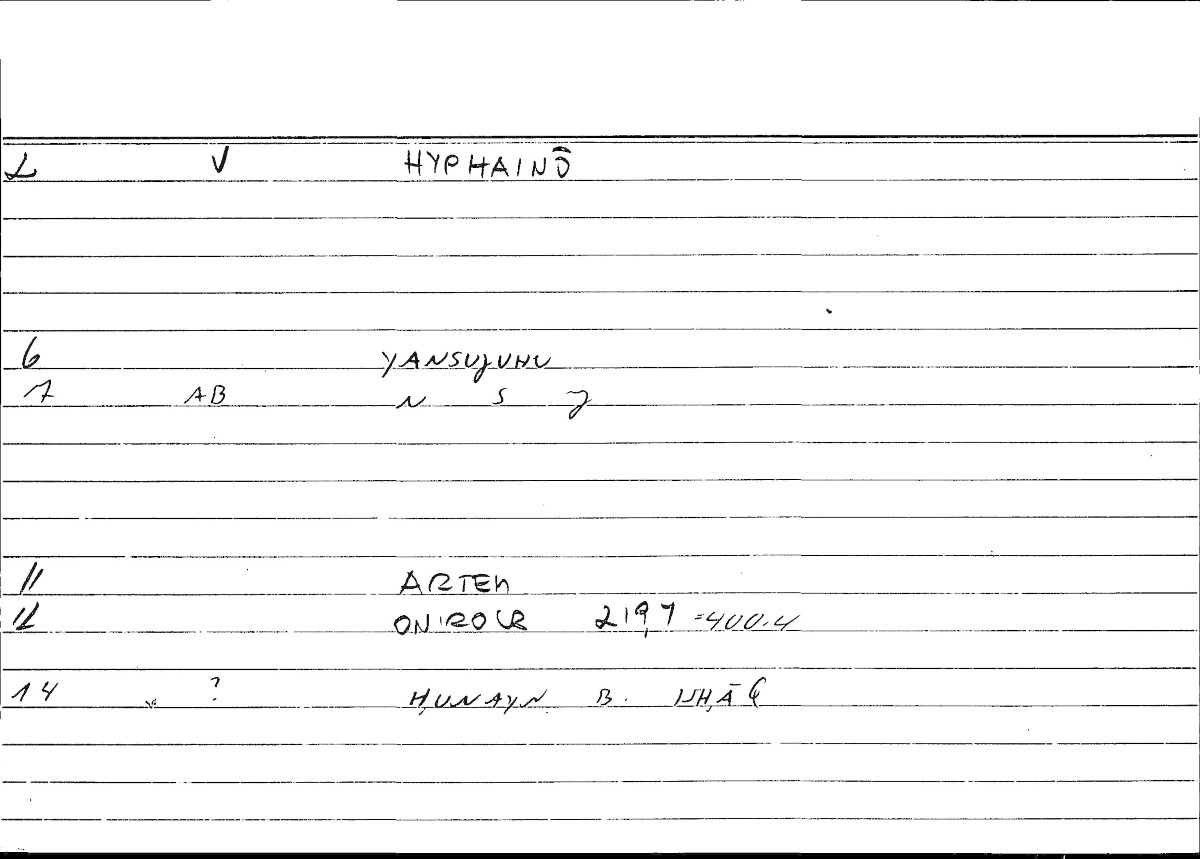 2 V HYPHAINŌ
6 YANSUJUHU
7 AB N S J
11 ARTEM
12 ONIROCR 219,7 =400.4
14 ? ḤUNAYN B. ISḤĀQ